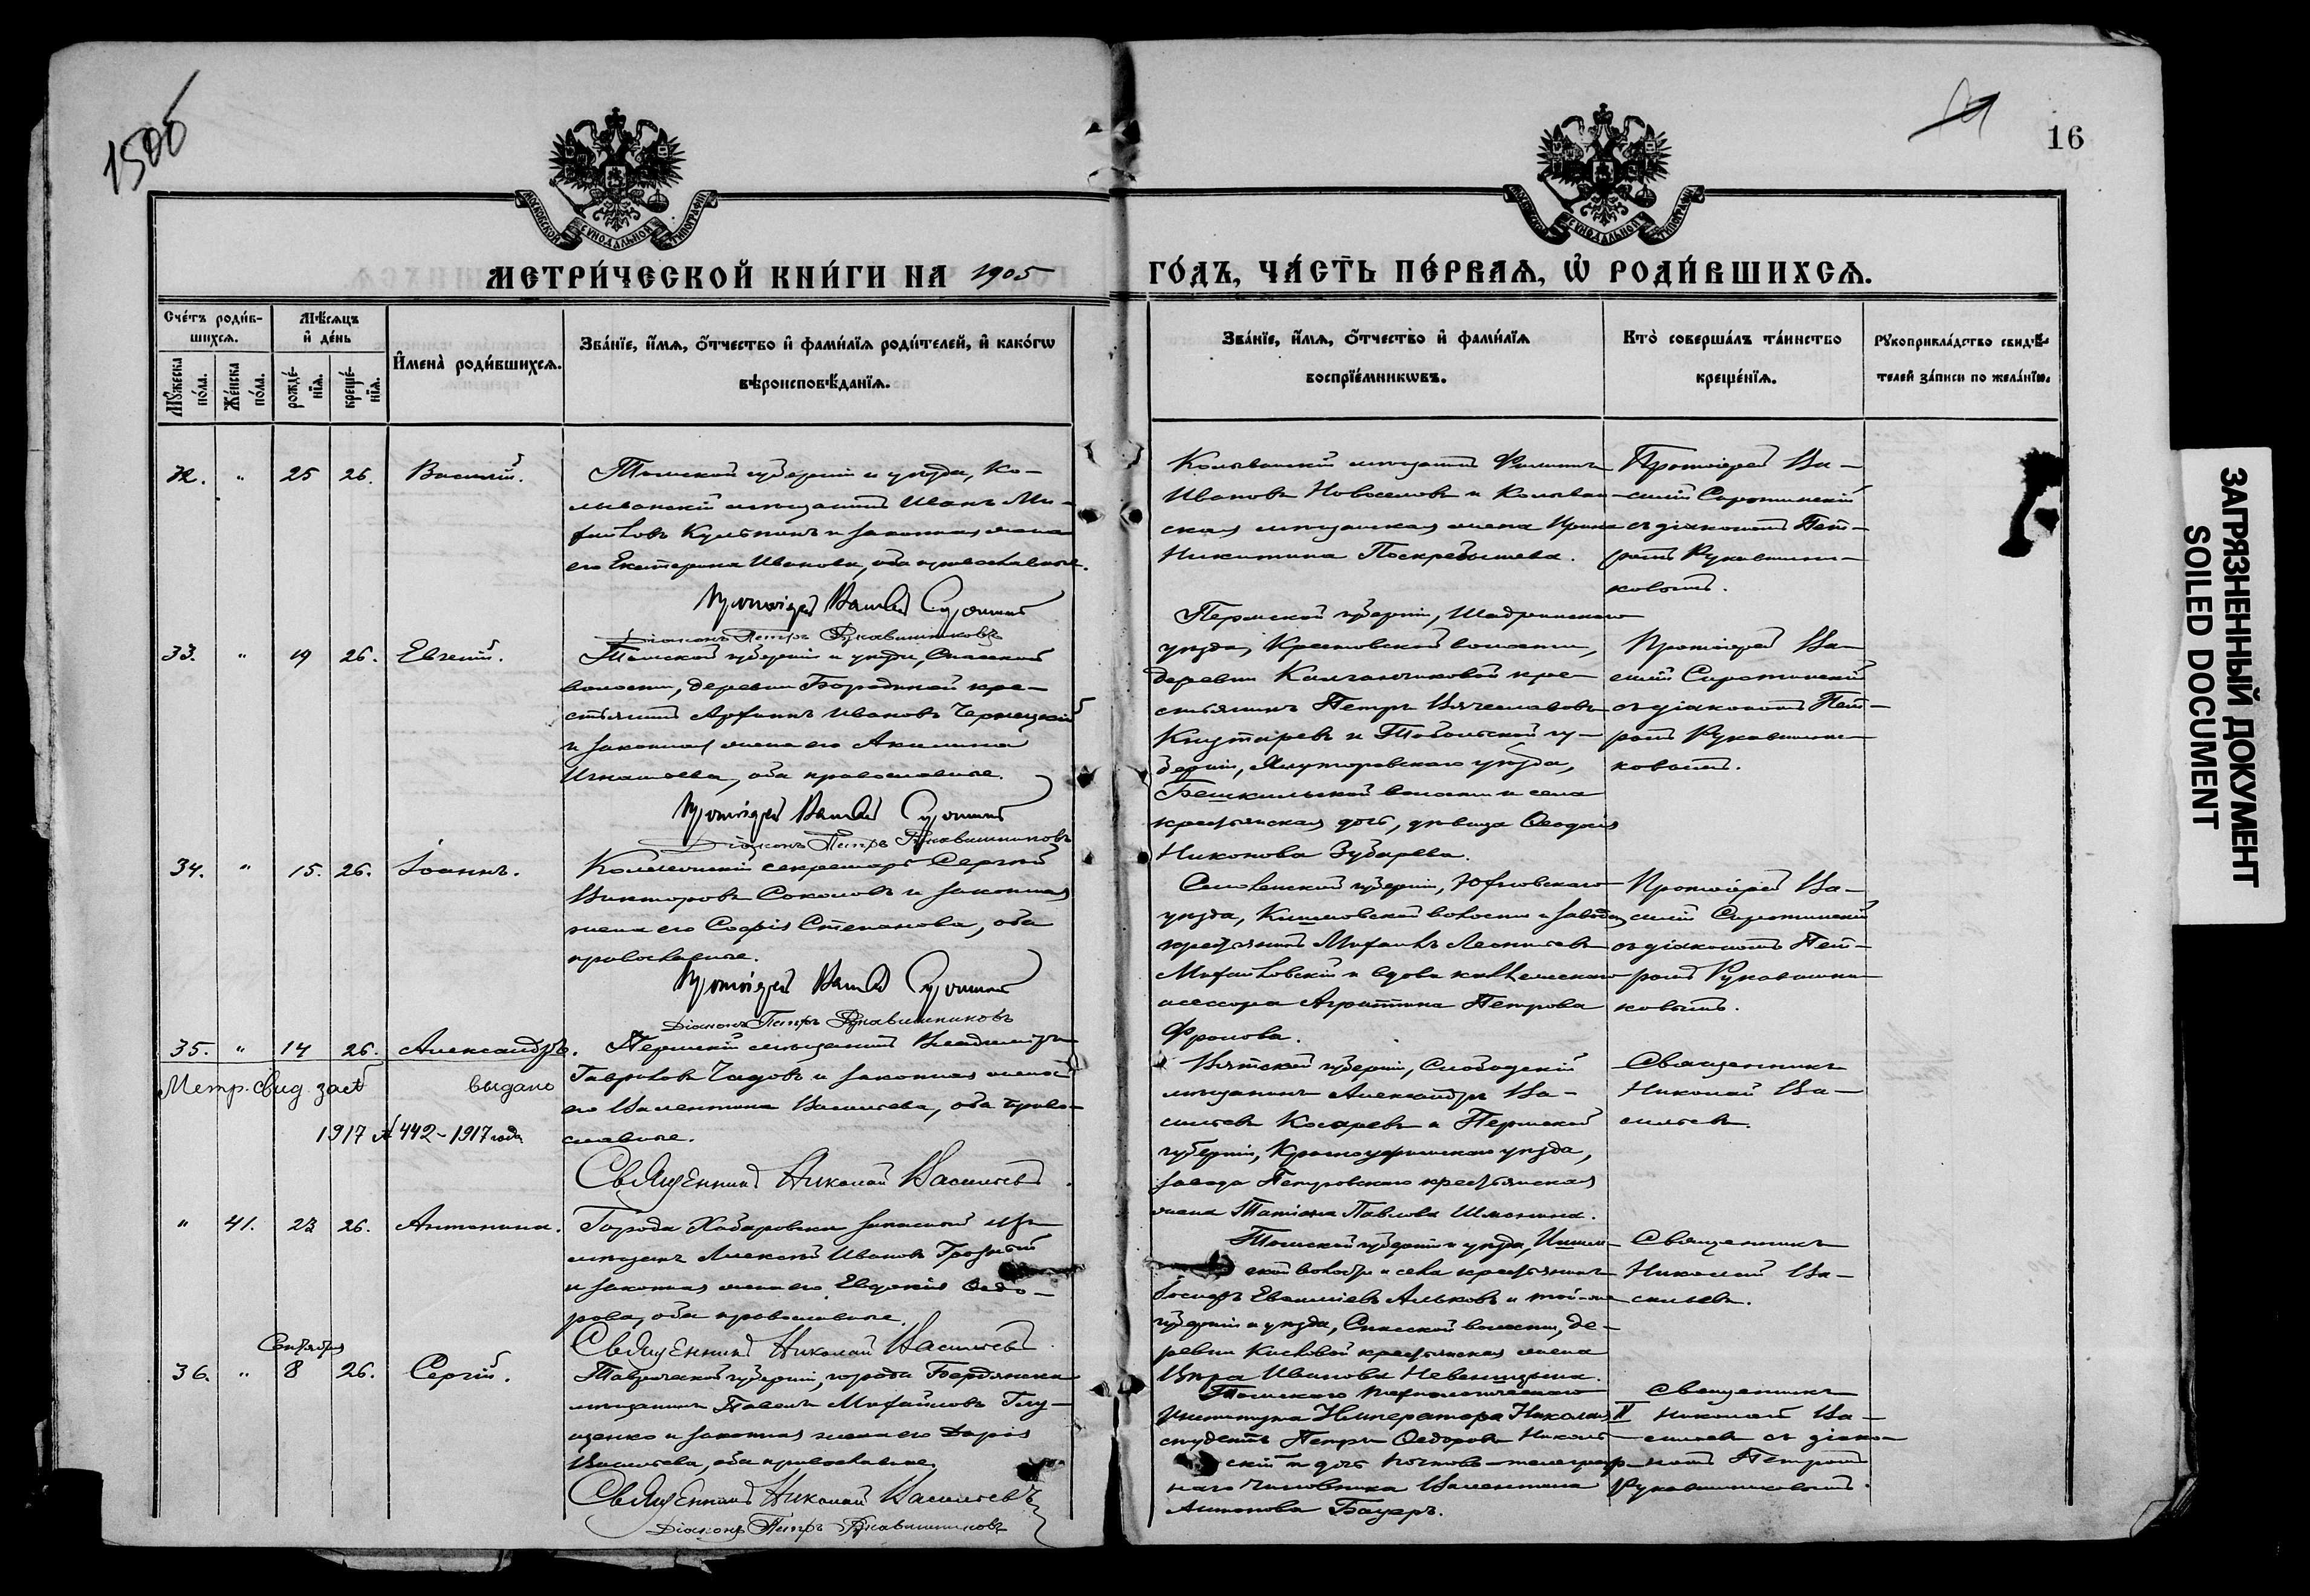 150б
16
МОСКОВСКОЙ СѴНОДАЛЬНОЙ ТИПОГРАФІИ
МОСКОВСКОЙ СѴНОДАЛЬНОЙ ТИПОГРАФІИ
МЕТРИ́ЧЕСКОЙ КНИ́ГИ НА 1905
ГО́ДЪ, ЧА́СТЬ ПЕ́РВАѦ, Ѡ҆ РОДИ́ВШИХСѦ.
Сче́тъ роди́в-
шихсѧ.
Мꙋ́жеска по́ла.
Же́нска по́ла.
Мѣ́сѧцъ
и҆ де́нь
рожде́-
нїѧ.
креще́-
нїѧ.
И҆мена̀ роди́вшихсѧ.
Зва́нїе, и҆́мѧ, ѻ҆́тчество и҆ фами́лїѧ роди́телей, и҆ како́гѡ
вѣроисповѣ́данїѧ.
Зва́нїе, и҆́мѧ, ѻ҆́тчество и҆ фами́лїѧ
воспрїе́мникѡвъ.
Кто̀ соверша́лъ та́инство
креще́нїѧ.
Рꙋкоприкла́дство свидѣ́-
телей за́писи по жела́нїю.
32. " 25 26. Василій.
Томской губерніи и уѣзда, Ко-
лыванскій мѣщанинъ Иванъ Ми-
хаиловъ и законная жена
его Екатерина Иванова, оба православные.
Протоіерей Василій Сиротинскій
Діаконъ Петръ Рукавишниковъ
Колыванскій мѣщанинъ Филиппъ
Ивановъ Новоселовъ и Колыван-
ская мѣщанская жена Ирина
Никитина Поскребышева.
Протоіерей Ва-
силій Сиротинскій
съ діакономъ Пет-
ромъ Рукавишни-
ковымъ.
33. " 19 26. Евгеній.
Томской губерніи и уѣзда, Спасской
волости, деревни Бородиной кре-
стьянинъ Иванов Чернецкій
и законная жена его Акилина
Игнатьева, оба православные.
Протоіерей Василій Сиротинскій
Діаконъ Петръ Рукавишниковъ
Пермской губерніи, Шадринскаго
уѣзда, Крестовской волости,
деревни кре-
стьянинъ Петръ Вячеславовъ
и Тобольской гу-
берніи, Ялуторовскаго уѣзда,
Бешкильской волости и села
крестьянская дочь, дѣвица Ѳеодосія
Никонова Зубарева.
Протоіерей Ва-
силій Сиротинскій
съ діакономъ Пет-
ромъ Рукавишни-
ковымъ.
34. " 15. 26. Іоаннъ.
Коллежскій секретарь Сергѣй
Викторовъ Соколовъ и законная
жена его Софія Степанова, оба
православные.
Протоіерей Василій Сиротинскій
Діаконъ Петръ Рукавишниковъ
Смоленской губерніи, Юхновскаго
уѣзда, волости и завода,
крестьянинъ Михаилъ Леонтьевъ
Михайловскій и вдова коллежскаго
асессора Агриппина Петрова
Фролова.
Протоіерей Ва-
силій Сиротинскій
съ діакономъ Пет-
ромъ Рукавишни-
ковымъ.
35. " 14 26. Александръ.
Метр. свид. выдано
1917 № 442-1917 года
Пермскій мѣщанинъ Владиміръ
Гавриловъ Чадовъ и законная жена
его Валентина Васильева, оба право-
славные.
Священникъ Николай Васильевъ
Вятской губерніи, Слободскій
мѣщанинъ Александръ Ва-
сильевъ Косаревъ и Пермской
губерніи, Красноуфимскаго уѣзда,
завода Петровскаго крестьянская
жена Татіана Павлова
Священникъ
Николай Ва-
сильевъ.
" 41. 23 26. Антонина.
Города Хабаровска запасной изъ
мѣщанъ Алексѣй Ивановъ Грозный
и законная жена его Евдокія Ѳедо-
рова, оба православные.
Священникъ Николай Васильевъ
Томской губерніи и уѣзда, Ишим-
ской волости и села крестьянинъ
Евъ Альковъ и той-же
губерніи и уѣзда, Спасской волости, де-
ревни Кисловой крестьянская жена
Вѣра Иванова
Священникъ
Николай Ва-
сильевъ.
Сентября
36. " 8 26. Сергій.
Таврической губерніи, города Бердянска
мѣщанинъ Павелъ Михайловъ Глу-
щенко и законная жена его Дарія
Васильева, оба православные.
Священникъ Николай Васильевъ
Діаконъ Петръ Рукавишниковъ
Томскаго Технологическаго
Института Императора Николая II
студентъ Петръ Ѳедоровъ Николь-
скій и дочь почтово-телеграф-
наго чиновника Валентина
Антонова Бауеръ.
Священникъ
Николай Ва-
сильевъ съ діако-
номъ Петромъ
Рукавишниковымъ.
ЗАГРЯЗНЕННЫЙ ДОКУМЕНТ
SOILED DOCUMENT